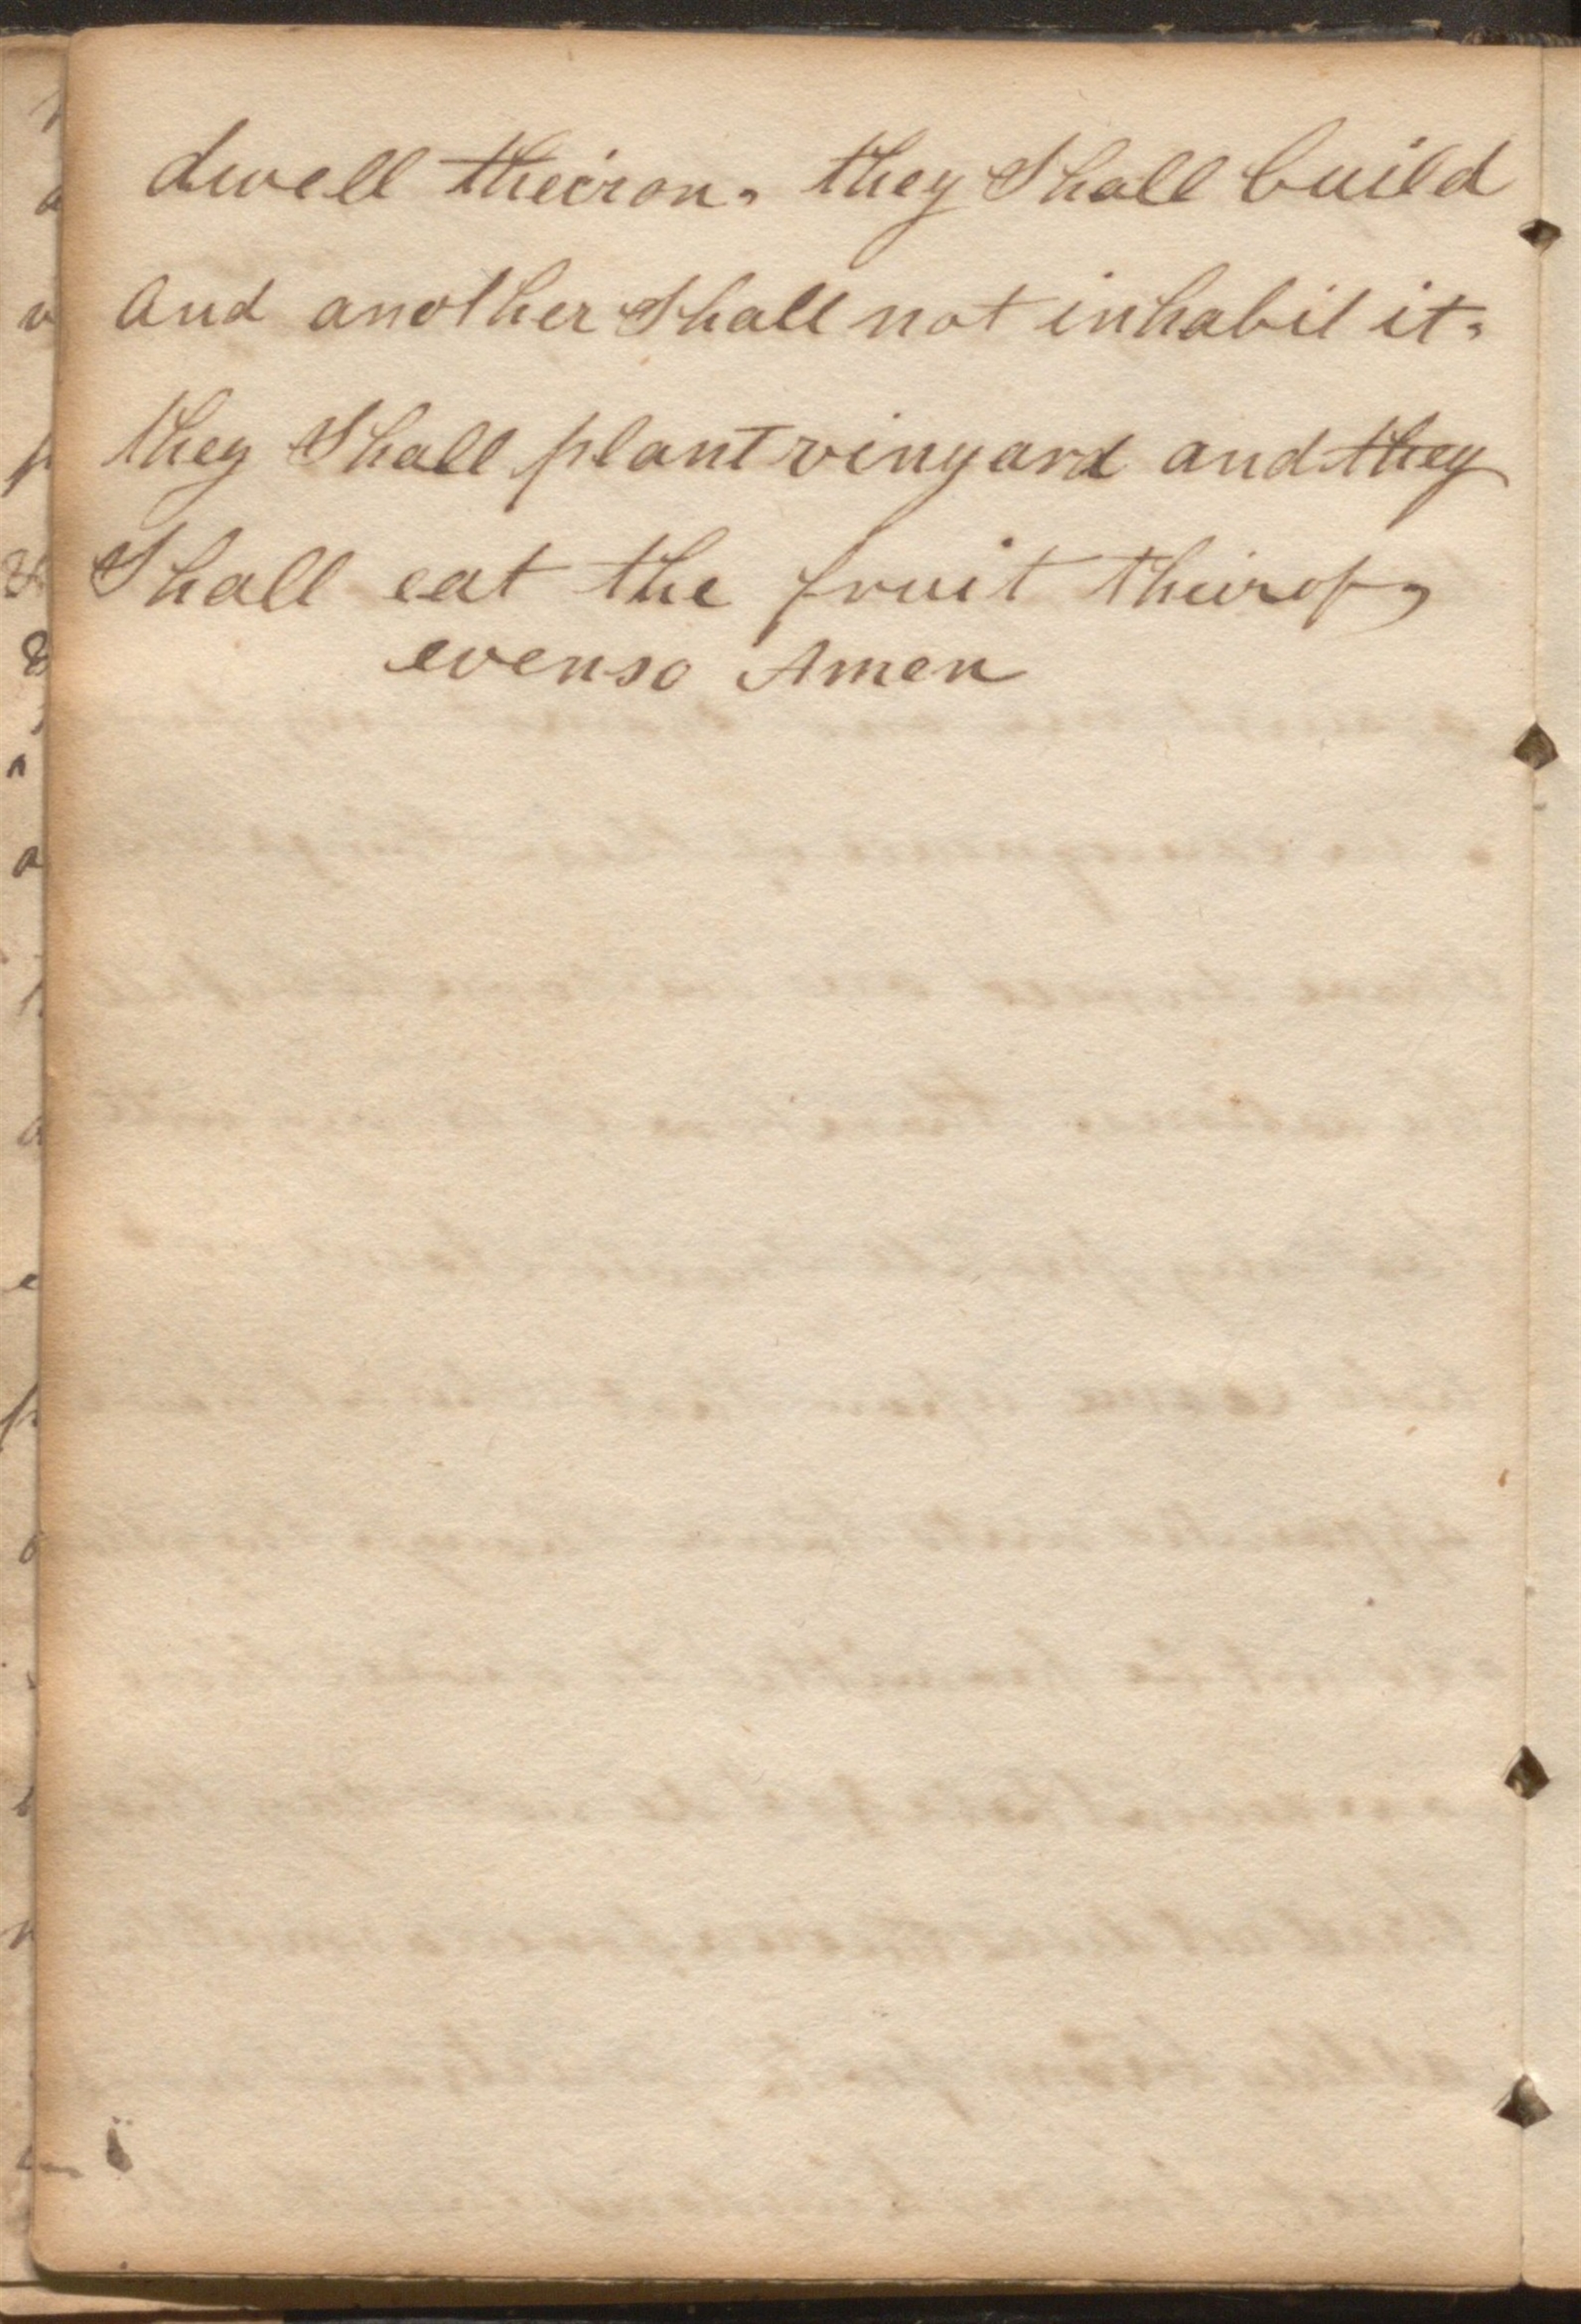 dwell theiron, they Shall build
and another Shall not inhabit it,
they Shall plant vinyard and they
Shall eat the fruit theirof,
evenso Amen